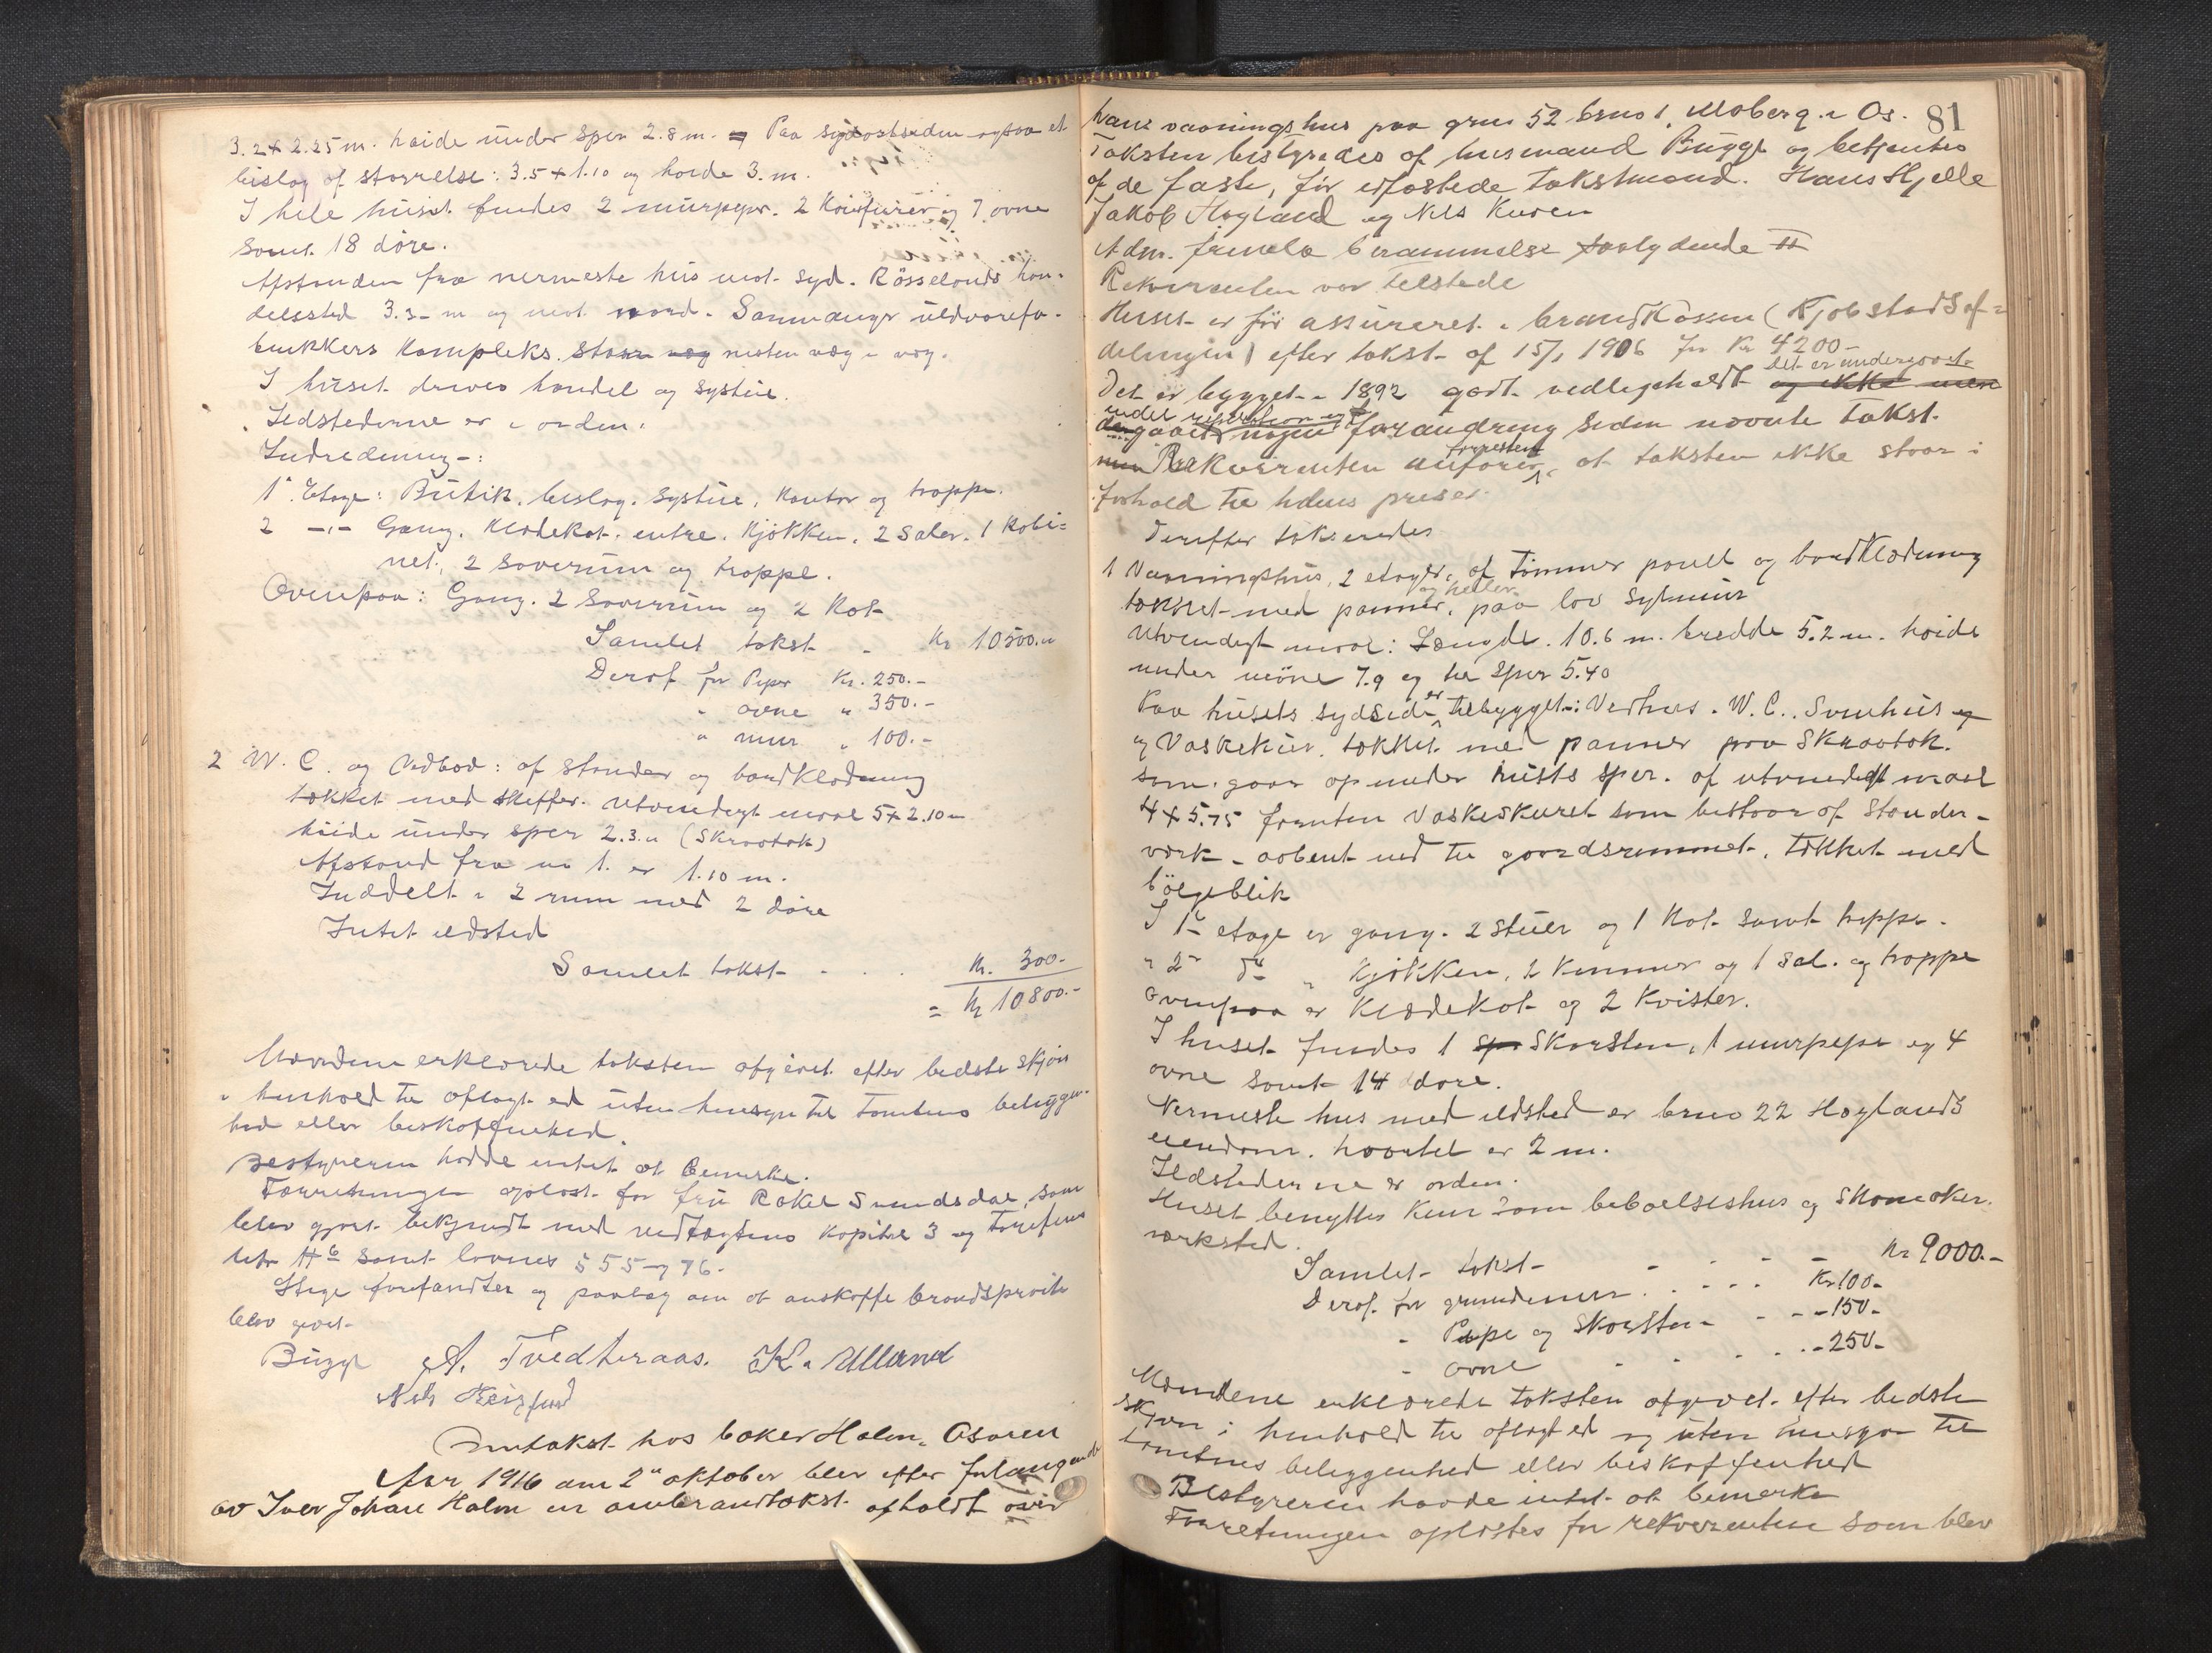 3.2 x 2.25 m. høide under sper 2.8 m. Paa sydostsiden ogsaa et
bislag af størrelse: 3.5 x 1.10 og høide 3. m.
I hele huset findes 2 murpiper. 2 Komfurer og 7 ovne
samt 18 døre.
Afstanden fra nermeste hus mot syd. Røsselands han-
delssted 3.3- m og mot nord. Samnanger uldvarefa-
brikkers Kompleks. staar væg nesten væg i væg.
I huset drives handel og systue.
Ildstederne er i orden.
Indredning:
1ste Etage: Butik. bislag. systue, Kontor og trappe.
2 -"- Gang. Klædekot. entre. Kjøkken. 2 Saler. 1 Kabi=
net, 2 soverum og trappe.
Ovenpaa: Gang. 2 soverum og 2 Kot
Samlet takst - Kr 10500.-
Deraf for Piper Kr. 250.-
" ovne " 350.-
" mur " 100.-
2 W. C. og Vedbod: af stender og bordklædning
tækket med skiffer. Utvendigt maal 5 x 2.10 m
høide under sper 2.3. m (Skraatak)
Afstand fra no 1. er 1.10 m.
Inddelt i 2 rum med 2 døre
Intet ildsted
Samlet takst - . . Kr. 300.-
= Kr 10800.-
Mændene erklærede taksten afgivet efter bedste skjøn
i henhold til aflagt ed uten hensyn til tomtens beliggen-
hed eller beskaffenhed.
Bestyreren hadde intet at bemerke.
Forretningen oplæst for fru Rakel Sundsdal, som
blev gjort bekjendt med vedtægtens Kapitel 3 og tariffens
litr H6 samt lovens § 55 og 76.
Stige forefandtes og paalæg om at anskaffe brandsprøite
blev givet.
Bugge A. Tvedteraas. K. Ulland
Nils
Omtakst hos baker Holm. Osøren
Aar 1916 den 2den oktober blev efter forlangende
av Iver Johan Holm en ombrandtakst afholdt over
81
hans vaaningshus paa gno 52 brno 1, Moberg i Os.
Taksten bestyredes af lensmand Bugge og betjentes
af de faste, før edfæstede takstmænd. Hans Hjelle
Jakob Høyland og Nils Kuven
Adm. fremla berammelse saalydende H
Rekvirenten var tilstede
Huset er før assureret i brandkassen (Kjøbstadsaf=
delingen) efter takst af 15/1 1906 for Kr 4200-
det er undergaat
Det er bygget i 1892 godt vedligeholdt og ikke uten
endel reparation og
dergaaet nogen forandring siden nævnte takst.
men Rekvirenten anfører forresten, at taksten ikke staar i
forhold til tidens priser.
Derefter takseredes
1 Vaaningshus, 2 etager, af tømmer panelt og bordklædning
og keller
tækket med panner, paa lav sylmur
Utvendigt maal: Længde. 10.6 m. bredde 5.2 m. høide
under møne 7.9 og til sper 5.40
Paa husets sydside er tilbygget: Vedhus. W. C.. Svinehus og
og Vaskeskur. tækket med panner paa Skraatak.
som. gaar op under husets sper. af utvendigt maal
4 x 5.75 foruten Vaskeskuret som bestaar af stender-
værk - aabent ind til gaardsrummet, tækket med
bølgeblik
I 1ste etage er gang. 2 stuer og 1 Kot samt trappe.
" 2den do " Kjøkken, 2 kammer og 1 sal. og trappe
ovenpaa er Klædekot og 2 Kvister.
I huset findes 1 Skorsten, 1 murpipe og 4
ovne samt 14 døre.
Nermeste hus med ildsted er brno 22 Høylands
eiendom, hvortil er 2 m.
Ildstederne er orden.
Huset benyttes Kun som beboelseshus og skomaker.
verksted.
Samlet takst - - - - Kr 9000.-
Deraf. for grundmur . . . . Kr 100-
" Pipe og Skorsten - - - 150-
" ovne . . . . - 250-
Mændene erklærede taksten afgivet efter bedste
skjøn i henhold til aflagt ed og uten hensyn til
tomtens beliggenhed eller beskaffenhed
Bestyreren havde intet at bemerke
Forretningen oplæstes for rekvirenten som blev